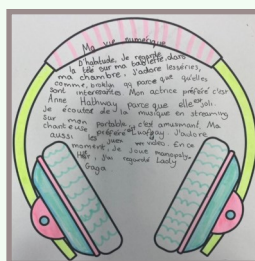 Ma vie numérique
D'habitude, Je regarde
la télé sur ma tablette, dans
ma chambre. J'adore les séries,
comme, broklyn 99 parce que qu'elles
sont interesantes. Mon actrice préférée c'est
Anne Hathway parce que elle est joli.
Je écouter de la musique en streaming
sur mon portable, c'est amusmant. Ma
chanteuse préférée J'adore
aussi les jeux vidéo. En ce
moment, Je Joue monopoly.
Hier, J'ai regardé Lady
Gaga.